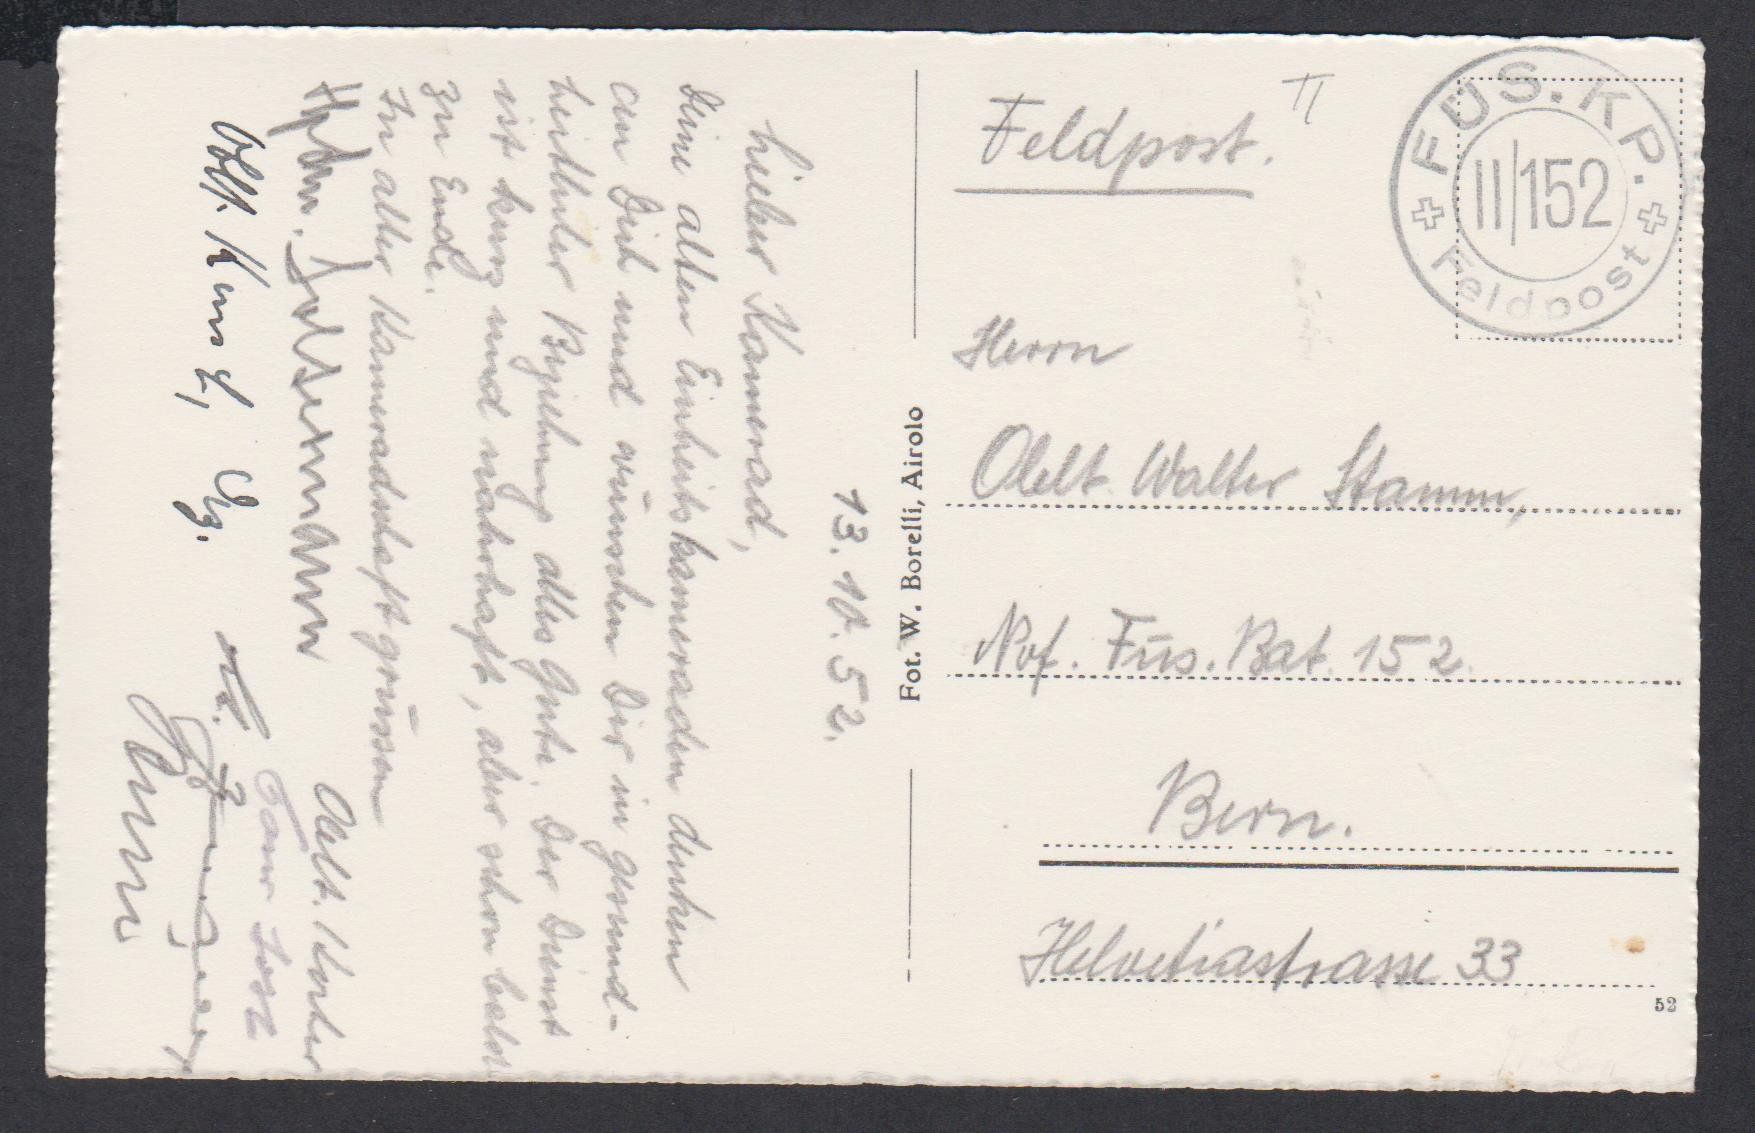 FÜS. KP.
II/152
Feldpost
Feldpost.
Herrn
Oblt. Walter Stamm,
Nof. Füs. Bat. 152.
Bern.
Helvetiastrasse 33
52
Fot. W. Borelli, Airolo
13. 10. 52.
Lieber Kamerad,
Deine alten Einheitskameraden denken
an Dich und wünschen Dir in gesund-
heitlicher Beziehung alles Gute. Der Dienst
ist kurz und nahrhaft, aber schon bald
zu Ende.
In alter Kameradschaft grüssen
Oblt.
Hptm.
Oblt. Kunz,
Lt.